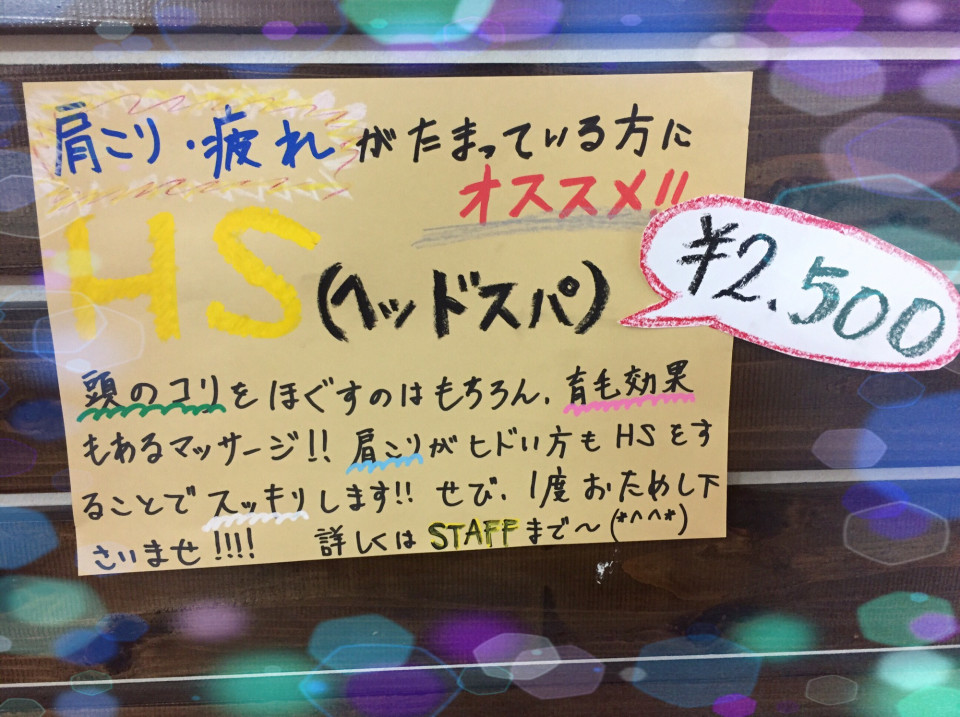 肩こり・疲れがたまっている方に
オススメ!!
HS(ヘッドスパ)
¥2.500
頭のコリをほぐすのはもちろん、育毛効果
もあるマッサージ!! 肩こりがヒドい方もHSをす
ることでスッキリします!! せび、1度おためし下
さいませ!!!! 詳しくはSTAFFまで〜(*^^*)